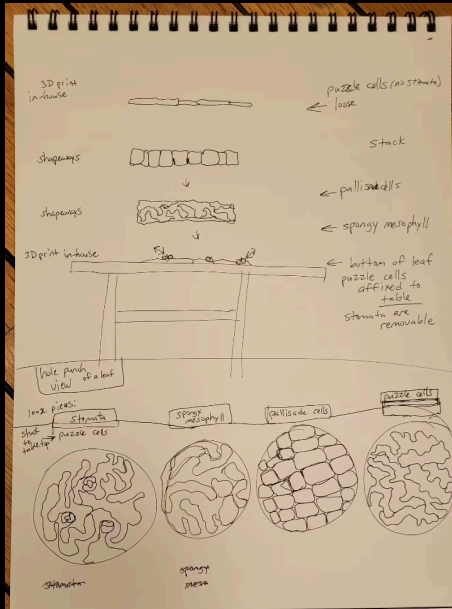 3D print
in-house
puzzle cells (no stomata)
← loose
stack
shapeways
← pallisade cells
shapeways
← spongy mesophyll
3D print in-house
← bottom of leaf
puzzle cells
affixed to
table
stomata are
removable
hole punch
view of a leaf
loose pieces:
stomata
spongy
mesophyll
pallisade cells
puzzle cells
stuck
to
tabletop
puzzle cells
stomata
spongy
meso